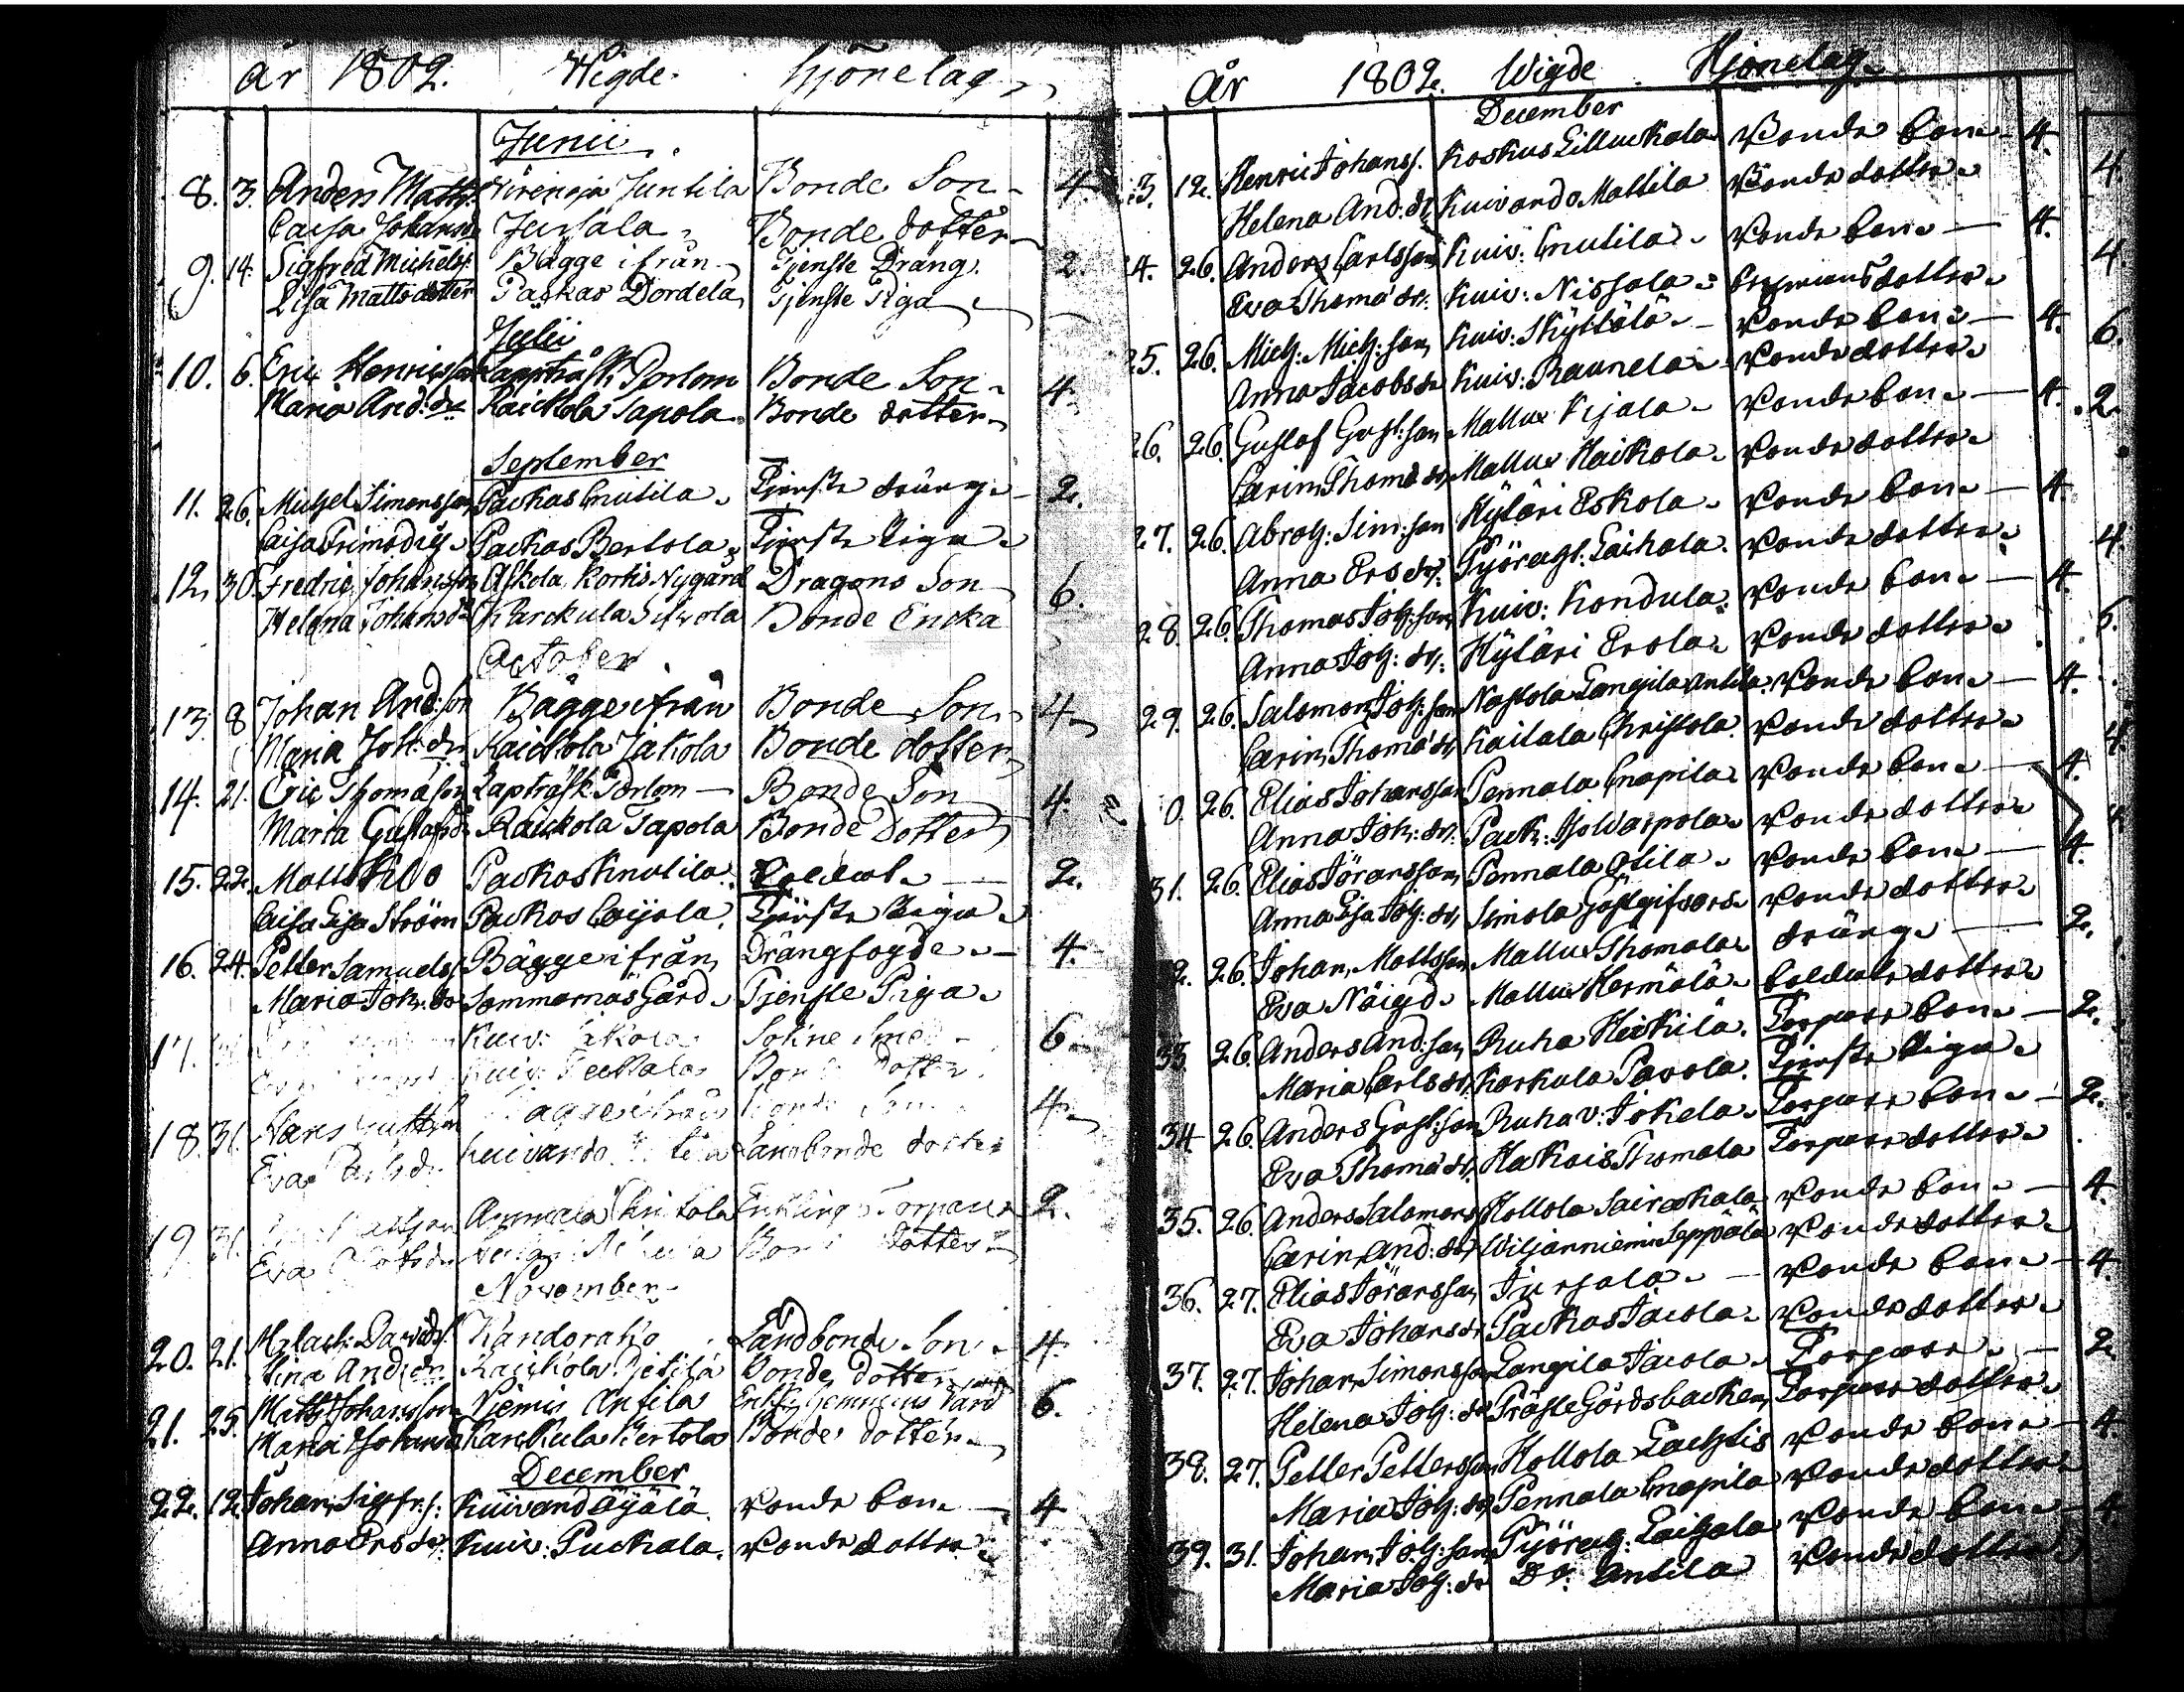 år 1802. Wigde. hjonelag
Junii
8. 3. Anders Matts. Wirensja Juntila Bonde Son 4.
Caisa Johansd. Jursala Bonde dotter
9. 14. Sigfred Michelss. Bägge ifrån Tjenste Dräng. 2.
Lisa Mattsdotter Paskas Dordela Tjenste Piga
Julii
10. 6. Eric Henricsson Lappträsk Porlom Bonde Son 4.
Maria And. dr Kaickola Tapola Bonde dotter
September
11. 26. Michel Simonsson Packas Cnutila Tjenste dräng 2.
Caisa Packas Bertola Tjenste Piga
12. 30. Fredric Johansson Askola Kortis Nygård Dragons Son 6.
Helena Johansdr Karckula Bonde Encka
October
13. 8 Johan And:son Bägge ifrån Bonde Son 4
Maria Joh:dr Kaickola Jakola Bonde dotter
14. 21. Eric Thomason Lapträsk Porlom Bonde Son 4
Maria Gustafsdr Kaickola Tapola Bonde Dotter
15. 22. Matts Klo Packas Knutila Soldat 2.
Caisa Lisa Ström Packas Caijala Tjenste Piga
16. 24. Petter Samuelss. Bägge ifrån Drängfogde 4.
Maria Joh: dr Sommarnäs Gård Tjenste Piga
17. Kuiv: Sokne 6
Kuiv: dotter
18. 31. Bonde Son 4
Eva Kuivando Landbonde dotter
19. 31. Enkling Torpare 2.
Eva dotter
November
20. 21. Malach: Davids. Kandorako Landbonde Son 4.
Stina And:dr Kaickola Bonde Dotter
21. 25. Matts Johansson Niemis Antila 6.
Maria Johansd Karckula Bertola Bonde dotter
December
22. 12. Johan Sigfr:s: Kuivand Äijälä Bonde Son 4
Anna Ersdr: Kuiv: Puckala. Bonde dotter
År 1802. Wigde Hjonelag
December
3. 12. Henric Johanss. Koskus Lilluckala Bonde Son 4.
Helena And: dr Kuivando Mattila Bonde dotter
4. 26. Anders Carlsson Kuiv: Cnutila Bonde Son 4.
Eva Thoma dr: Kuiv: Nissola dotter
5. 26. Mich: Mich: son Kuiv: Skyttälä Bonde Son 4.
Anna Jacobsdr Kuiv: Raunela Bonde dotter
26. 26. Gustaf Gust:son Mallux Kijala Bonde Son 4.
Carin Thoma dr Mallux Haikola Bonde dotter
27. 26. Abrah: Sim:son Hyläri Eskola Bonde Son 4.
Anna Ersdr: Pyöragl: Laihala. Bonde dotter
28. 26. Thomas Joh:son Kuiv: Kondula Bonde Son 4.
Anna Joh: dr: Hyläri Erola Bonde dotter
29. 26. Salomon Joh:son Nastola Langila Antila Bonde Son 4.
Carin Thoma dr Kaitala Christola Bonde dotter
0. 26. Elias Johansson Pennala Cnapila Bonde Son 4.
Anna Joh: dr: Pack: Iso Warpola Bonde dotter
31. 26. Elias Göransson Pennala Otila Bonde Son 4.
Anna Lisa Joh: dr Simola Gästgifvars Bonde dotter
2. 26. Johan Mattsson Mallux Thomala dräng 2.
Eva Näigd Mallux Hermälä Soldats dotter
33. 26. Anders And:son Ruha Heickilä Torpare Son 2.
Maria Carlsdr, Karkula Pavola. Tjenste Piga
34 26. Anders Gust:son Ruha v: Jokela Torpare Son 2.
Eva Thoma dr, Hakois Thomala Torpare dotter
35. 26. Anders Salomons Hollola Sairakala Bonde Son 4.
Carin And: dr Wiljanniemi Seppälä Bonde dotter
36. 27. Elias Göransson Jursala Bonde Son 4.
Eva Johansdr Packas Jacola Bonde dotter
37. 27. Johan Simonsson Langila Jacola Torpare 2.
Helena Joh: dr Präste Gårdsbacken Torpare dotter
38. 27. Petter Pettersson Hollola Lachtis Bonde Son 4.
Maria Joh: dr Pennala Cnapila Bonde dotter
39. 31. Johan Joh:son Pyörag: Laihala Bonde Son 4.
Maria Joh: dr Do: Antila Bonde dotter
4.
4
6.
2.
4.
6.
4.